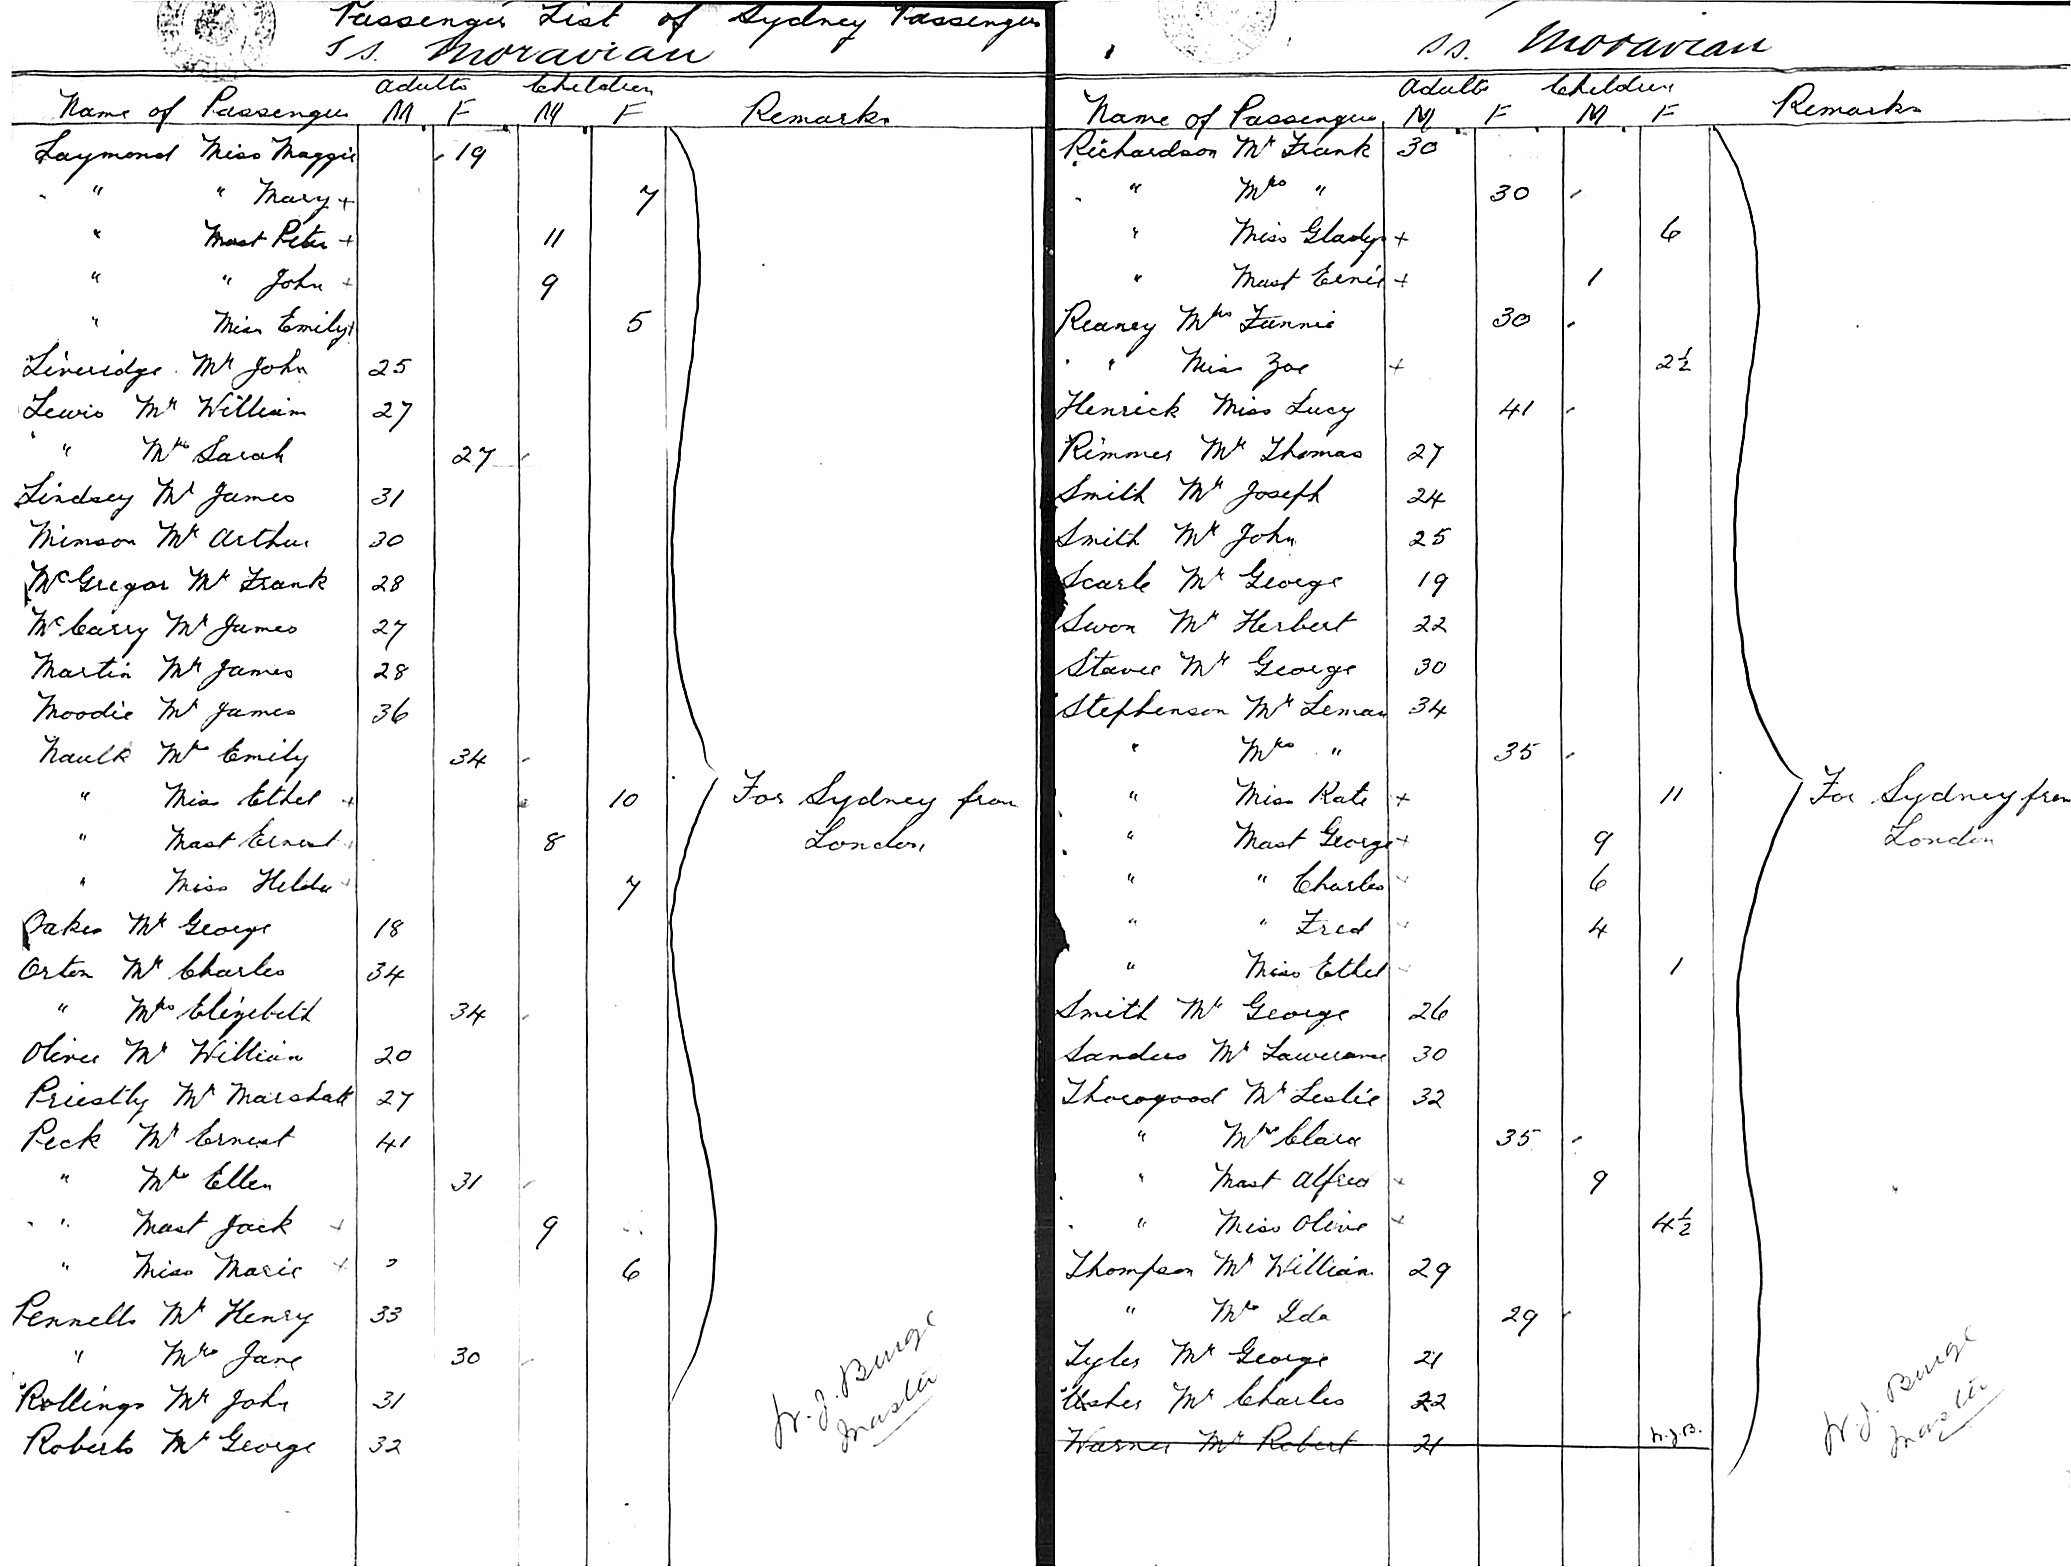 Passenger List of Sydney Passengers
S.S. Moravian
Adults Children
Name of Passenger M F M F Remarks
Laymond Miss Maggie 19
" " Mary + 7
" Mast Peter + 11
" " John + 9
" Miss Emily + 5
Liveridge Mr John 25
Lewis Mr William 27
" Mrs Sarah 27
Lindsey Mr James 31
Mimson Mr Arthur 30
McGregor Mr Frank 28
McCarry Mr James 27
Martin Mr James 28
Moodie Mr James 36
Naulk Mrs Emily 34
" Miss Ethel + 10
" Mast Ernest + 8
" Miss Hilda + 7
For Sydney from
London
Oakes Mr George 18
Orton Mr Charles 34
" Mrs Elizebeth 34
Oliver Mr William 20
Priestly Mr Marshall 27
Peck Mr Ernest 41
" Mrs Ellen 31
" Mast Jack + 9
" Miss Marie + 6
Pennells Mr Henry 33
" Mrs Jane 30
Rollings Mr John 31
Roberts Mr George 32
W. J. Burge
Master
S.S. Moravian
Adults Children
Name of Passenger M F M F Remarks
Richardson Mr Frank 30
" Mrs " 30
" Miss Gladys + 6
" Mast Ernie + 1
Reaney Mrs Fannie 30
" Miss Zoe + 2½
Henrick Miss Lucy 41
Rimmer Mr Thomas 27
Smith Mr Joseph 24
Smith Mr John 25
Searle Mr George 19
Swon Mr Herbert 22
Staves Mr George 30
Stephenson Mr Leman 34
" Mrs " 35
" Miss Kate + 11
" Mast George + 9
" " Charles + 6
" " Fred + 4
" Miss Ethel + 1
For Sydney from
London
Smith Mr George 26
Sanders Mr Lawerance 30
Thorogood Mr Leslie 32
" Mrs Clara 35
" Mast Alfred + 9
" Miss Olive + 4½
Thompson Mr William 29
" Mrs Ida 29
Tyler Mr George 21
Usher Mr Charles 22
Warner Mr Robert 21 W.J.B.
W. J. Burge
Master